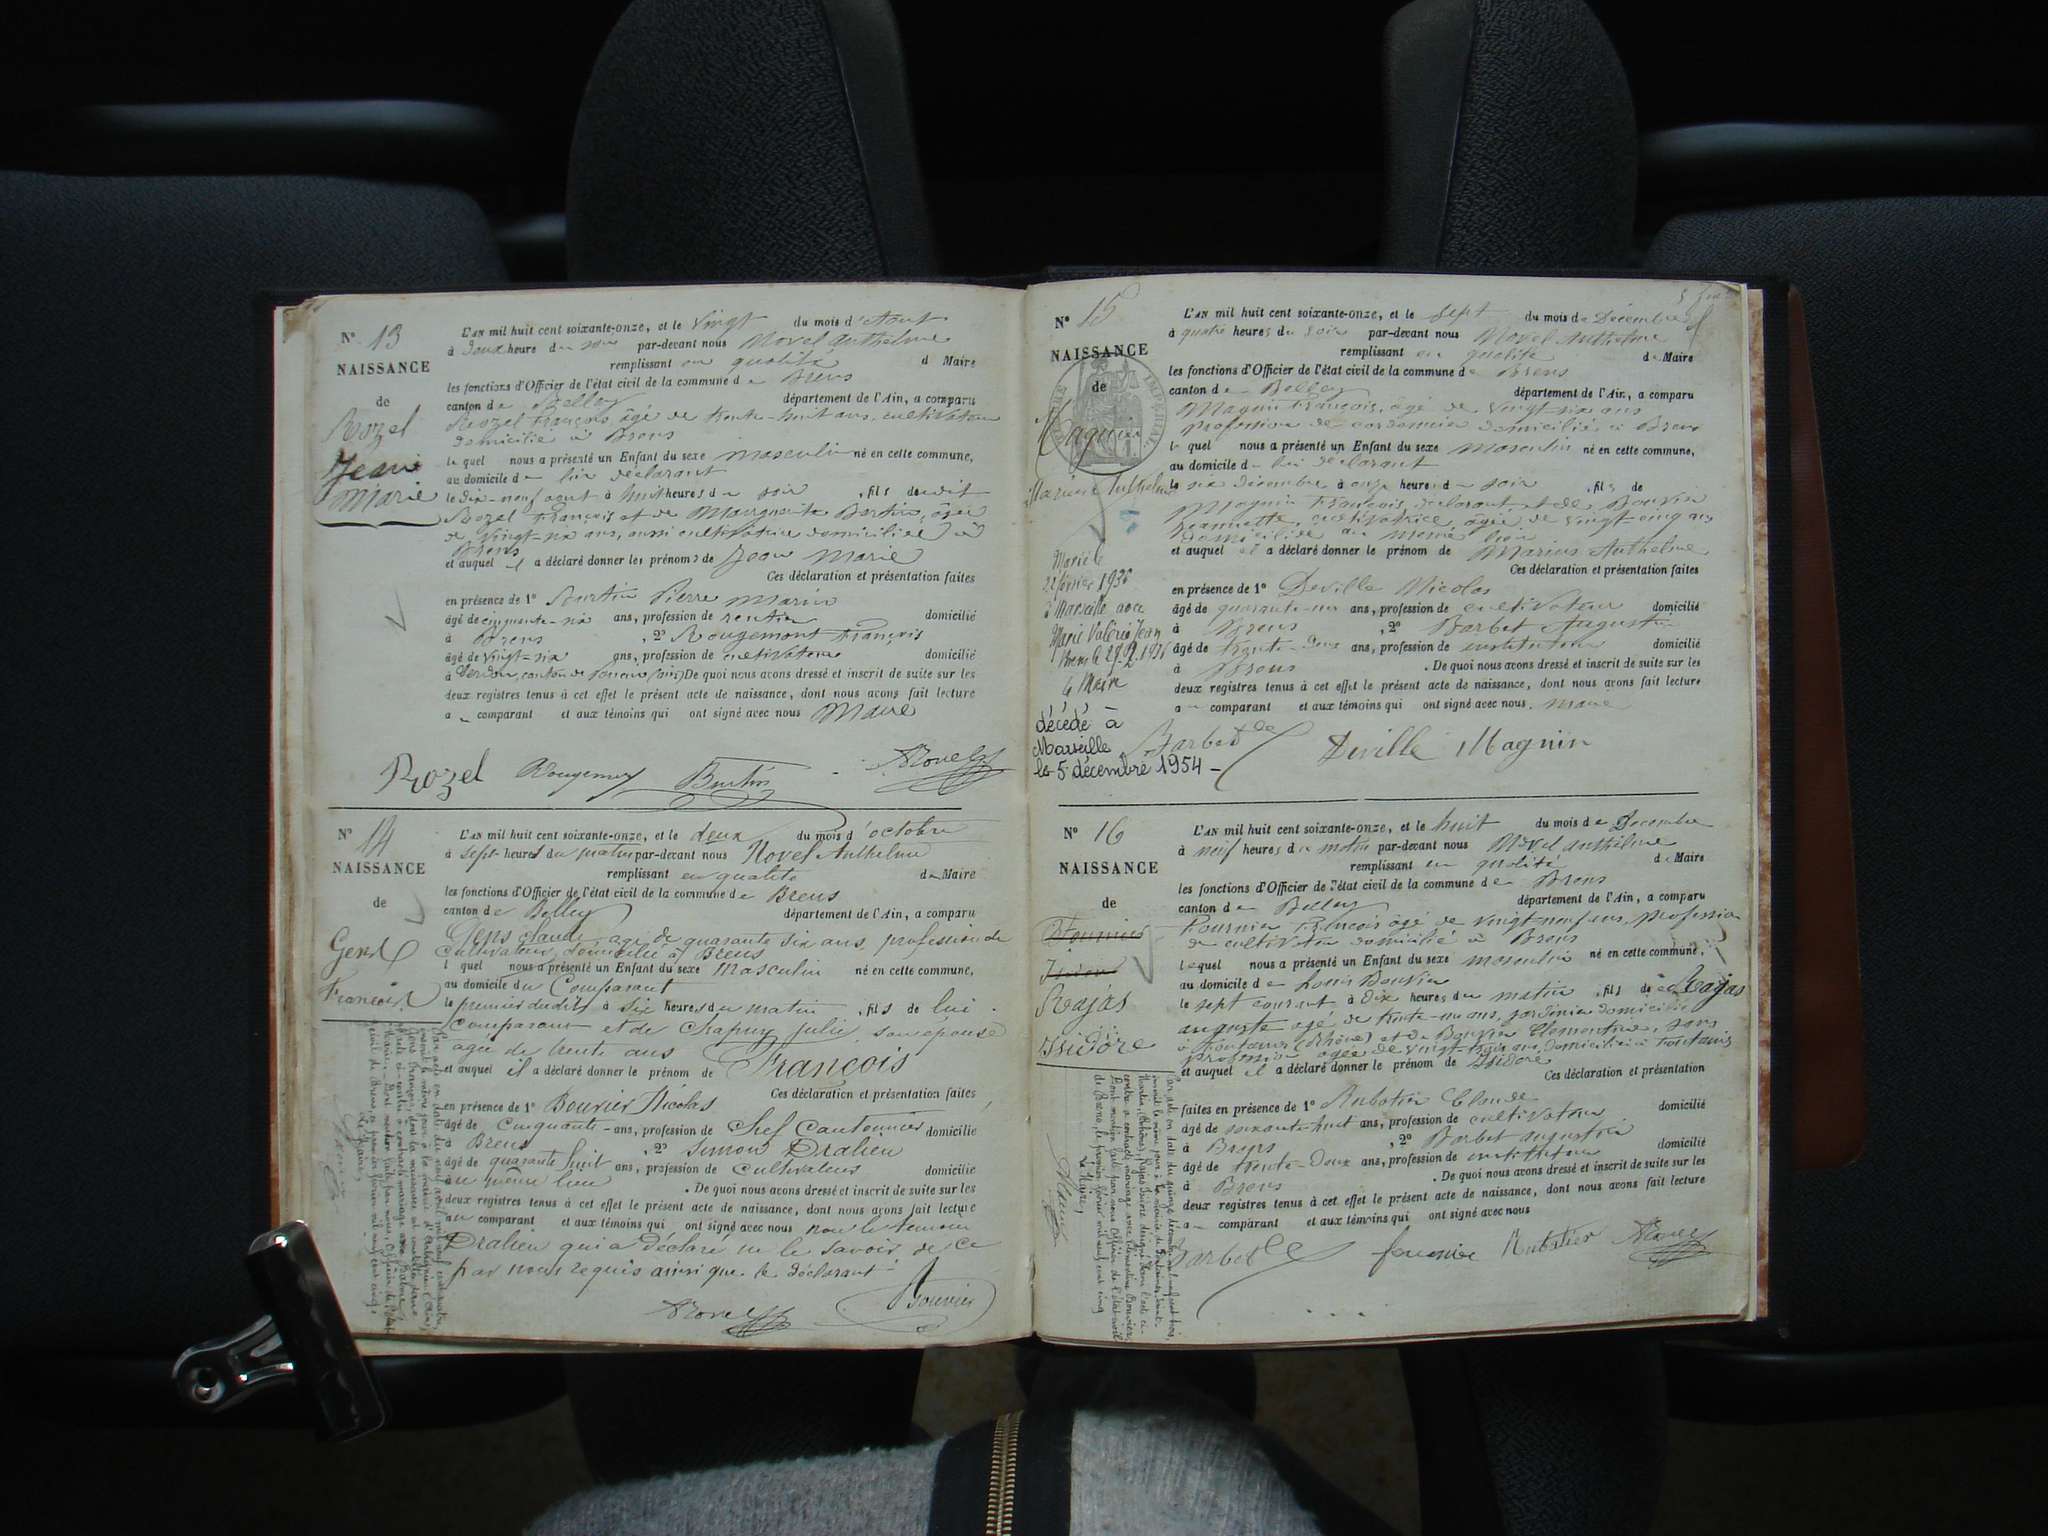 N° 13
NAISSANCE
de
Rozel
Jean
Marie
L'AN mil huit cent soixante-onze, et le vingt du mois d'Aout
à deux heure du soir par-devant nous Novel Anthelme
remplissant en qualité d Maire
les fonctions d'Officier de l'état civil de la commune de Brens
canton de Belley département de l'Ain, a comparu
Rozel François, âgé de trente-huit ans, cultivateur
domicilié à Brens
lequel nous a présenté un Enfant du sexe masculin né en cette commune,
au domicile de lui déclarant
le dix-neuf aout à huit heures du soir, fils dudit
Rozel François et de Marguerite Burtin, âgée
de vingt-six ans, aussi cultivatrice domiciliée à
Brens
et auquel il a déclaré donner les prénoms de Jean Marie
Ces déclaration et présentation faites
en présence de 1° Burtin Pierre Marin
âgé de cinquante-six ans, profession de rentier domicilié
à Brens, 2° Rougemont François
âgé de vingt-six ans, profession de cultivateur domicilié
à De quoi nous avons dressé et inscrit de suite sur les
deux registres tenus à cet effet le présent acte de naissance, dont nous avons fait lecture
au comparant et aux témoins qui ont signé avec nous Maire
Rozel Rougemont Burtin Novel
N° 14
NAISSANCE
de
Gens
François
L'AN mil huit cent soixante-onze, et le deux du mois d'octobre
à sept heures du matin par-devant nous Novel Anthelme
remplissant en qualité de Maire
les fonctions d'Officier de l'état civil de la commune de Brens
canton de Belley département de l'Ain, a comparu
Gens Claude agé de quarante six ans, profession de
Cultivateur, domicilié à Brens
l quel nous a présenté un Enfant du sexe Masculin né en cette commune,
au domicile du Comparant
le premier dudit à six heures du matin, fils de lui
comparant et de Chapuy Julie, son épouse
agée de trente ans
et auquel il a déclaré donner le prénom de François
Ces déclaration et présentation faites
en présence de 1° Bouvier Nicolas
âgé de Cinquante ans, profession de Chef Cantonnier domicilié
à Brens, 2° Simon Dralien
âgé de quarante huit ans, profession de Cultivateur domicilié
au même lieu. De quoi nous avons dressé et inscrit de suite sur les
deux registres tenus à cet effet le présent acte de naissance, dont nous avons fait lecture
au comparant et aux témoins qui ont signé avec nous non le temoin
Dralien qui a déclaré ne le savoir de ce
par nous requis ainsi que le déclarant
Novel Bouvier
N° 15
NAISSANCE
de
Magnin
Marius Anthelme
Marié le
22 février 1936
à Marseille avec
Marie Valérie Jean
Brens le 29.2.1936
le Maire
décédé à
Marseille
le 5 décembre 1954
L'AN mil huit cent soixante-onze, et le sept du mois de Décembre
à quatre heures du soir par-devant nous Novel Anthelme
remplissant en qualité de Maire
les fonctions d'Officier de l'état civil de la commune de Brens
canton de Belley département de l'Ain, a comparu
Magnin François, âgé de vingt-six ans
profession de cordonnier domicilié à Brens
lequel nous a présenté un Enfant du sexe masculin né en cette commune,
au domicile de lui déclarant
le six décembre à onze heures du soir, fils de
Magnin François, déclarant et de Bouvier
Jeannette, cultivatrice, âgée de vingt-cinq ans
domiciliée au même lieu
et auquel il a déclaré donner le prénom de Marius Anthelme
Ces déclaration et présentation faites
en présence de 1° Deville Nicolas
âgé de quarante-un ans, profession de cultivateur domicilié
à Brens, 2° Barbet Augustin
âgé de trente-deux ans, profession de instituteur domicilié
à Brens. De quoi nous avons dressé et inscrit de suite sur les
deux registres tenus à cet effet le présent acte de naissance, dont nous avons fait lecture
au comparant et aux témoins qui ont signé avec nous. maire
Barbet Deville Magnin
N° 16
NAISSANCE
de
Fournier
Isidore
Rajas
Isidore
L'AN mil huit cent soixante-onze, et le huit du mois de Décembre
à neuf heures du matin par-devant nous Novel Anthelme
remplissant en qualité de Maire
les fonctions d'Officier de l'état civil de la commune de Brens
canton de Belley département de l'Ain, a comparu
Fournier François âgé de vingt-neuf ans, profession
de cultivateur domicilié à Brens
lequel nous a présenté un Enfant du sexe masculin né en cette commune,
au domicile de Louis Bouvier
le sept courant à dix heures du matin, fils de Rajas
auguste agé de trente-un ans, jardinier domicilié
à Fontaines (Rhône) et de Bouvier Clémentine, sans
profession agée de vingt-trois ans, domiciliée à Fontaines
et auquel il a déclaré donner le prénom de Isidore
Ces déclaration et présentation
faites en présence de 1° Rubatier Claude
âgé de soixante-huit ans, profession de cultivateur domicilié
à Brens, 2° Barbet Augustin
âgé de trente-deux ans, profession de instituteur domicilié
à Brens. De quoi nous avons dressé et inscrit de suite sur les
deux registres tenus à cet effet le présent acte de naissance, dont nous avons fait lecture
au comparant et aux témoins qui ont signé avec nous
Barbet fournier Rubatier Novel